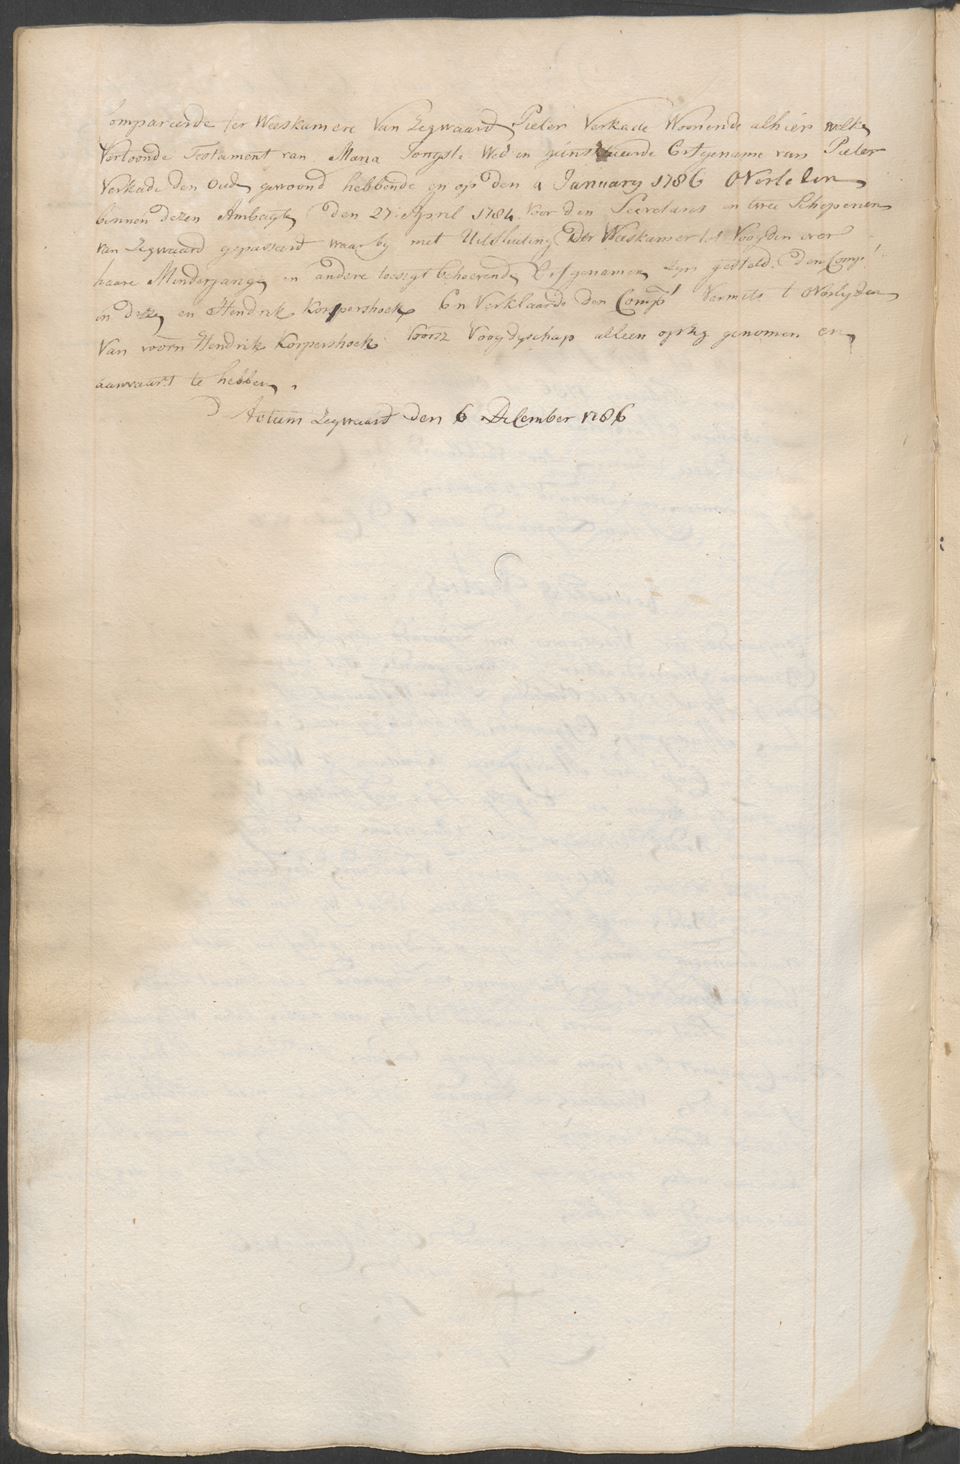 Compareerde ter Weeskamere Van Zegwaard Pieter Verkade Woonende alhier welke
Vertoonde Testament van Maria Jongste Wed en geinstitueerde Erfgename van Pieter
Verkade den Oude gewoond hebbende en op den 1 January 1786 Overleden
binnen dezen Ambagte den 27 April 1784 voor den Secretaris en twee Schepenen
van Zegwaard gepasseerd waarby met Uitsluiting Der Weeskamer tot Voogden over
haare Minderjarige en andere toesigt behoevende Erfgenamen zyn gesteld den Comp.t
in deze en Hendrik Korpershoek En Verklaarde den Comp.t Vermits t Overlyden
Van voorn Hendrik Korpershoek Voorsz Voogdyschap alleen op zig genomen en
aanvaart te hebben.
Actum Zegwaard den 6 December 1786